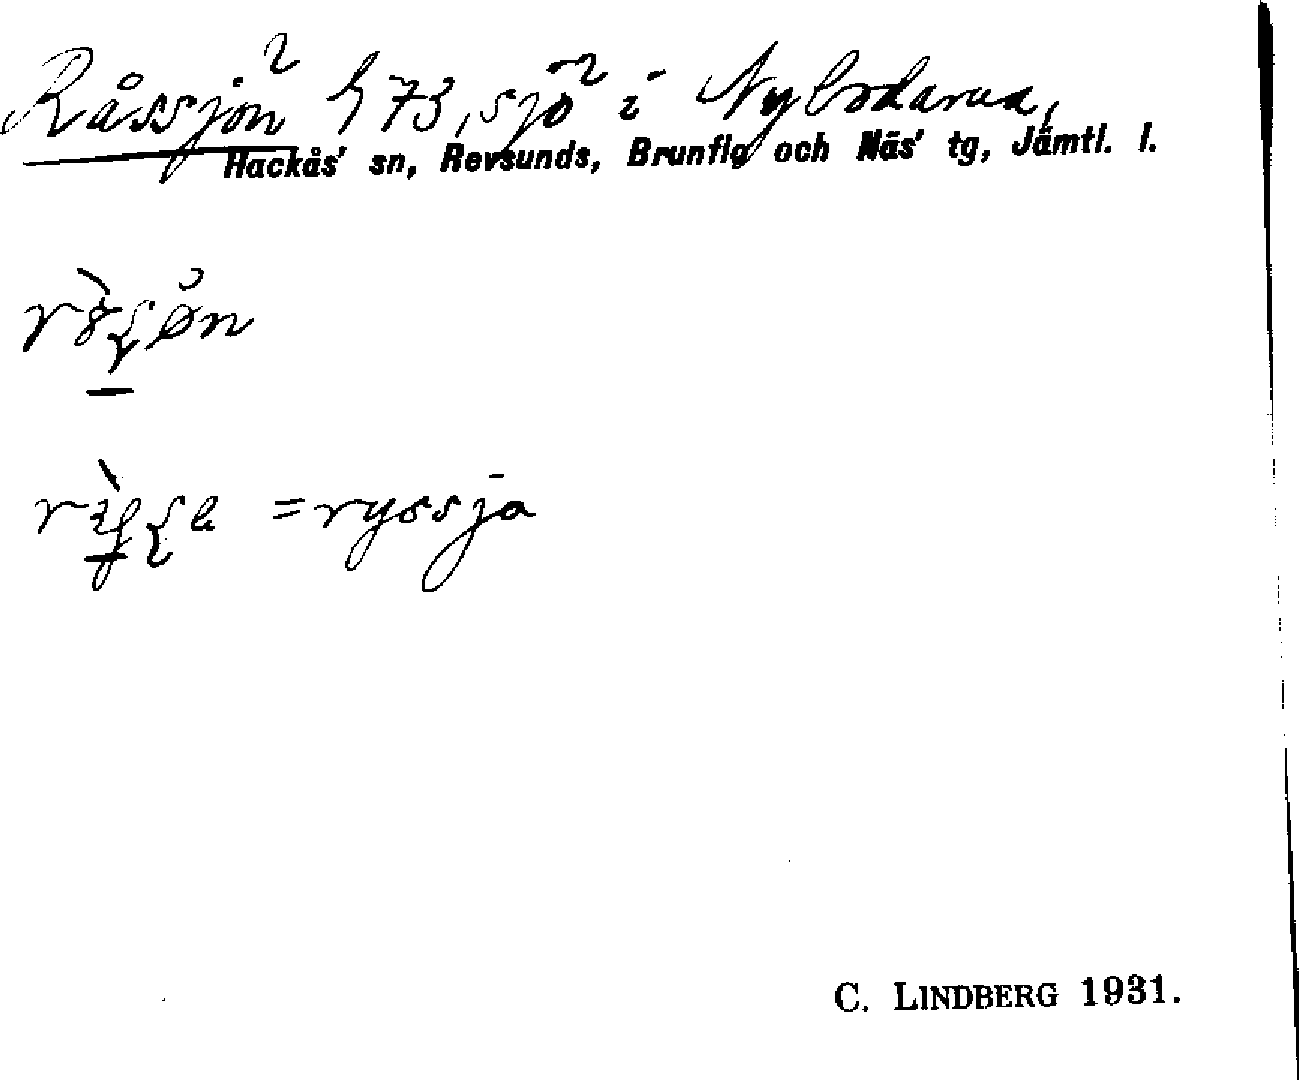 Råssjön 473, sjö i Nybodarna,
Hackås' sn, Revsunds, Brunflo och Näs' tg, Jämtl. l.
= ryssja
C. LINDBERG 1931.